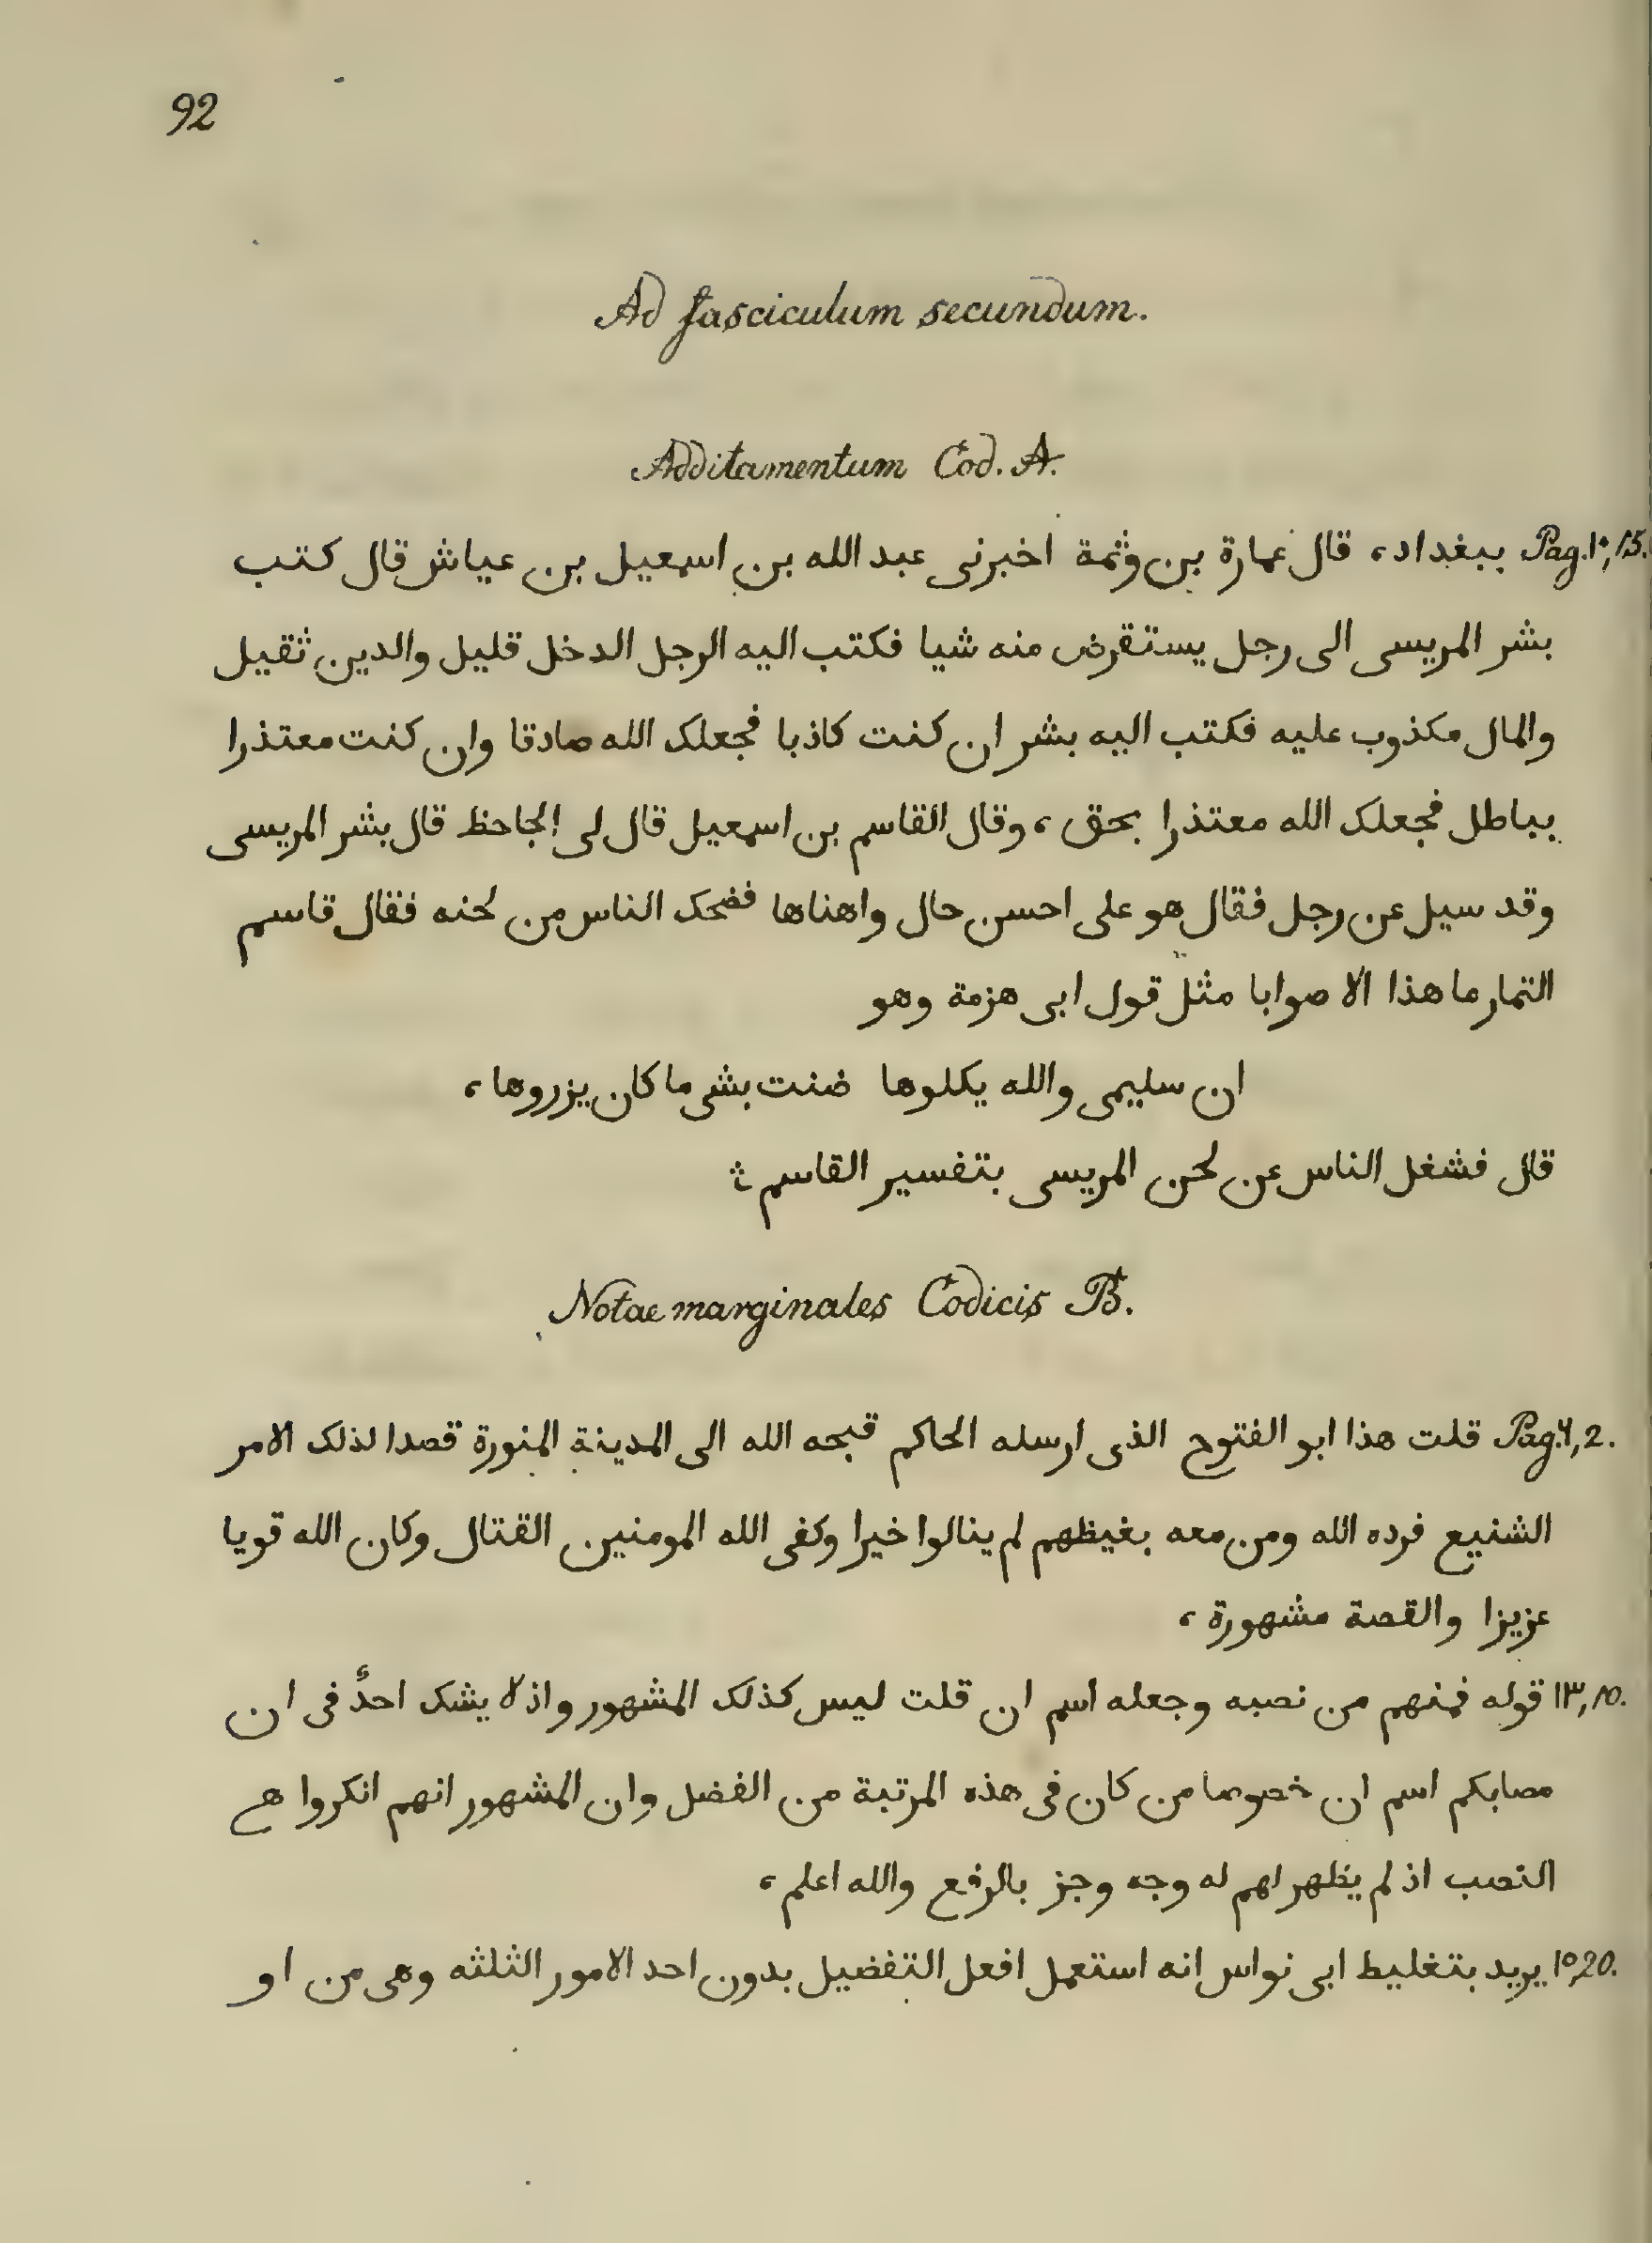 92
Ad fasciculum secundum.
Additamentum Cod. A.
Pag. ١٥, 15. ببغداد، قال عمارة بن وثمة اخبرنى عبد الله بن اسمعيل بن عياش قال كتب
بشر المريسى الى رجل يستقرض منه شيا فكتب اليه الرجل الدخل قليل والدين ثقيل
والمال مكذوب عليه فكتب اليه بشر ان كنت كاذبا فجعلك الله صادقا وان كنت معتذرا
بباطل فجعلك الله معتذرا بحق، وقال القاسم بن اسمعيل قال لى الجاحظ قال بشر المريسى
وقد سيل عن رجل فقال هو على احسن حال واهناها فضحك الناس من لحنه فقال قاسم
التمار ما هذا الا صوابا مثل قول ابى هزمة وهو
ان سليمى والله يكلوها ضنت بشى ما كان يزروها،
قال فشغل الناس عن لحن المريسى بتفسير القاسم
Notae marginales Codicis B.
Pag. ٧, 2. قلت هذا ابو الفتوح الذى ارسله الحاكم قبحه الله الى المدينة المنورة قصدا لذلك الامر
الشنيع فرده الله ومن معه بغيظهم لم ينالوا خيرا وكفى الله المومنين القتال وكان الله قويا
عزيزا والقصة مشهورة،
١٣, 10. قوله فمنهم من نصبه وجعله اسم ان قلت ليس كذلك المشهور واذ لا يشك احدٌ فى ان
مصابكم اسم ان خصوصا من كان فى هذه المرتبة من الفضل وان المشهور انهم انكروا
النصب اذ لم يظهر لهم له وجه وجز بالرفع والله اعلم،
١٥, 20. يريد بتغليط ابى نواس انه استعمل افعل التفضيل بدون احد الامور الثلثه وهى من او